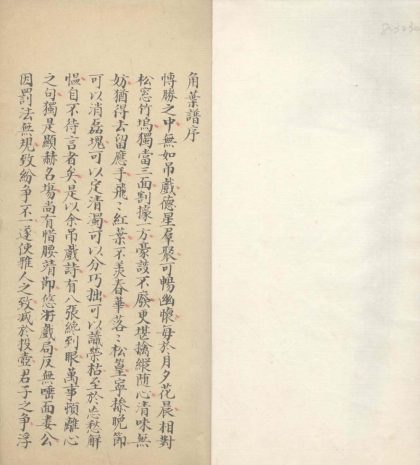 角葉譜序
博勝之中無如吊戲德星羣聚可暢幽懷每於月夕花晨相對
松窓竹塢獨當三面割據一方豪談不廢更堪擒縱隨心清味無
妨猶得去留應手飛〻紅葉不羡春華落〻松篁寧㨾晚節
可以消磊塊可以定清濁可以分巧拙可以識榮枯至於忘愁解
愠自不待言者矣是以余吊戲詩有八張纔到眼萬事頓離心
之句獨是顯赫名塲尚有惜腰靖節悠游戲局反無唾面婁公
因罰法無規致紛争不一遂使雅人之致減於投壺君子之争浮